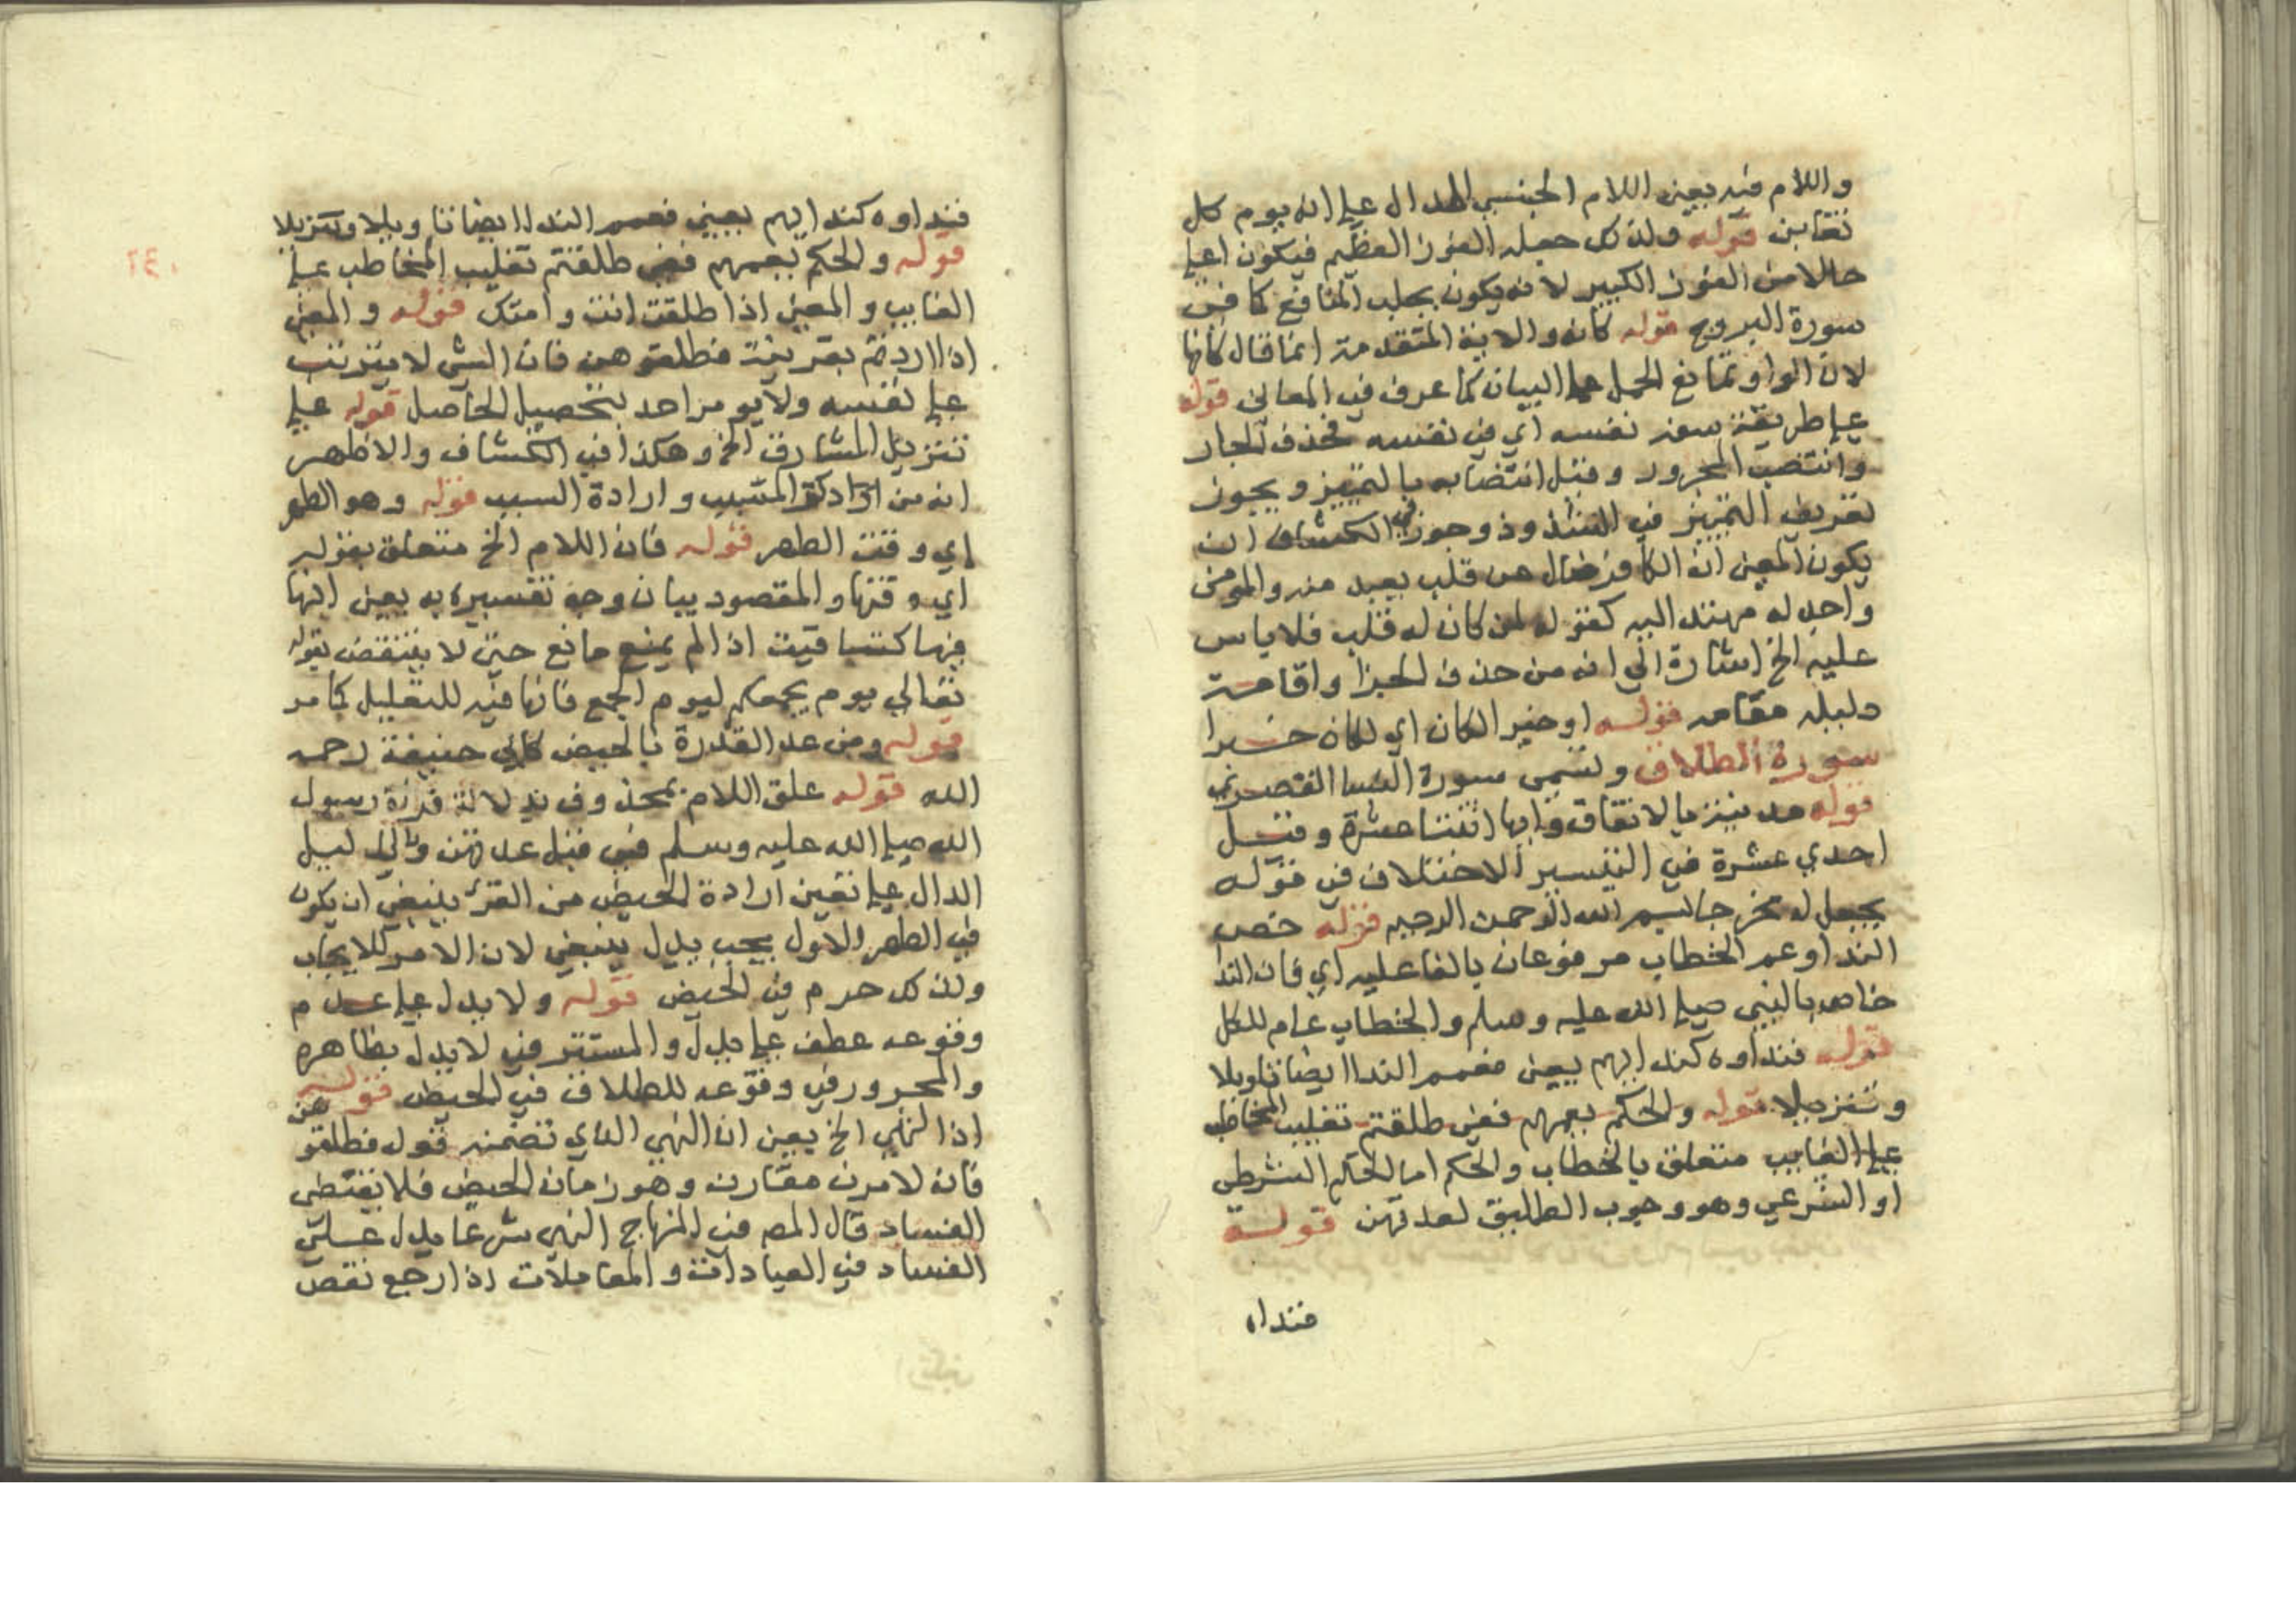 واللام فيه يعني اللام الجنسي الدال على انه يوم كل
تغابن قوله ولذلك جعله الفوز العظيم فيكون اعلى
حالا من الفوز الكبير لانه يكون بجلب المنافع كما في
سورة البروج قوله كانه والاية المتقدمة انما قال كانها
لان الواو تمانع الحمل على البيان كما عرف في المعاني قوله
على طريقة سفه نفسه اي في نفسه فحذف الجار
وانتصب المجرور وقيل انتصابه بالتمييز ويجوز
تعريف التمييز في الشذوذ وجوز في الكشاف ان
يكون المعنى ان الكافر ضال عن قلب بعيد منه والمومن
واجد له مهتد اليه كقوله لمن كان له قلب فلا باس
عليه الخ اشارة الى انه من حذف الجزا واقامة
دليله مقامه قوله او خبر الكان اي لكان خيرا
سورة الطلاق وتسمى سورة النسا القصرى
قوله مدنية بالاتفاق وايها اثنتا عشرة وقيل
احدي عشرة في التيسير الاختلاف في قوله
يجعل له مخرجا بسم الله الرحمن الرحيم قوله خص
الندا وعم الخطاب مرفوعان بالفاعليه اي فان الندا
خاص بالنبي صلى الله عليه وسلم والخطاب عام للكل
قوله فنداوه كندايهم يعني فعمم الندا ايضا تاويلا
وتنزيلا قوله والحكم بعمهم ففي طلقتم تغليب المخاطب
على الغايب متعلق بالخطاب والحكم اما الحكم الشرطي
او الشرعي وهو وجوب الطليق لعدتهن قوله
فنداه
٢٤٠
فنداوه كندايهم يعني فعمم الندا ايضا تاويلا وتنزيلا
قوله والحكم بعمهم ففي طلقتم تغليب المخاطب على
الغايب والمعنى اذا طلقت انت وامتك قوله والمعنى
اذا اردتم بقرينة فطلقوهن فان الشي لا يترتب
على نفسه ولا يومر احد بتحصيل الحاصل قوله على
تنزيل المشارف الخ وهكذا في الكشاف والاظهر
انه من المسبب وارادة السبب قوله وهو الطهر
اي وقت الطهر قوله فان اللام الخ متعلق بقوله
اي وقتها والمقصود بيان وجه تفسيره به يعني انها
فيها كتساقيت اذا لم يمنع مانع حتى لا ينتقض بقوله
تعالي يوم يجمعكم ليوم الجمع فانها فيه للتعليل كما مر
قوله ومن عد القدرة بالحيض كابي حنيفة رحمه
الله قوله علق اللام بمحذوف بدلالة قراة رسول
الله صلى الله عليه وسلم في قبل عدتهن
الدال على تعين ارادة الحيض من القرء ينبغي ان يكون
في الطهر والاول يجب بدل ينبغي لان الامر للايجاب
ولذلك حرم في الحيض قوله ولا يدل على عدم
وقوعه عطف على يدل والمستتر في لا يدل بظاهره
والمجرور في وقوعه للطلاق في الحيض قوله
اذ النهي الخ يعني ان النهي الذي تضمنه قوله فطلقوهن
فانه لامرن مقارن وهو زمان الحيض فلا يقتضي
الفساد قال المصـ في المنهاج النهي شرعا يدل على
الفساد في العبادات والمعاملات اذا رجع نقص